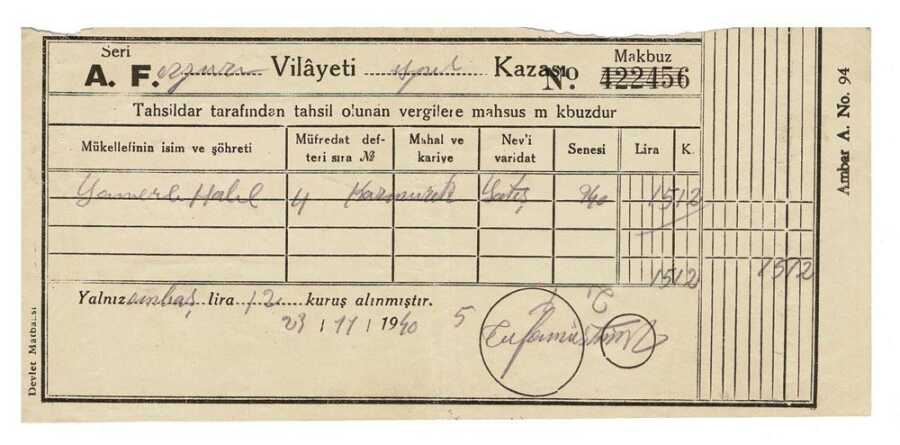 Seri
A. F. Erzurum Vilâyeti İspir Kazası
Makbuz
No. 422456
Tahsildar tarafından tahsil olunan vergilere mahsus m kbuzdur
Mükellefinin isim ve şöhreti
Müfredat def-
teri sıra №
Mahal ve
kariye
Nev'i
varidat
Senesi
Lira
K.
Halil 4 Satış 940 15 12
15 12
15 12
Yalnız onbeş lira 12 kuruş alınmıştır.
23 / 11 / 1940
5
Devlet Matbaası
Ambar A. No. 94